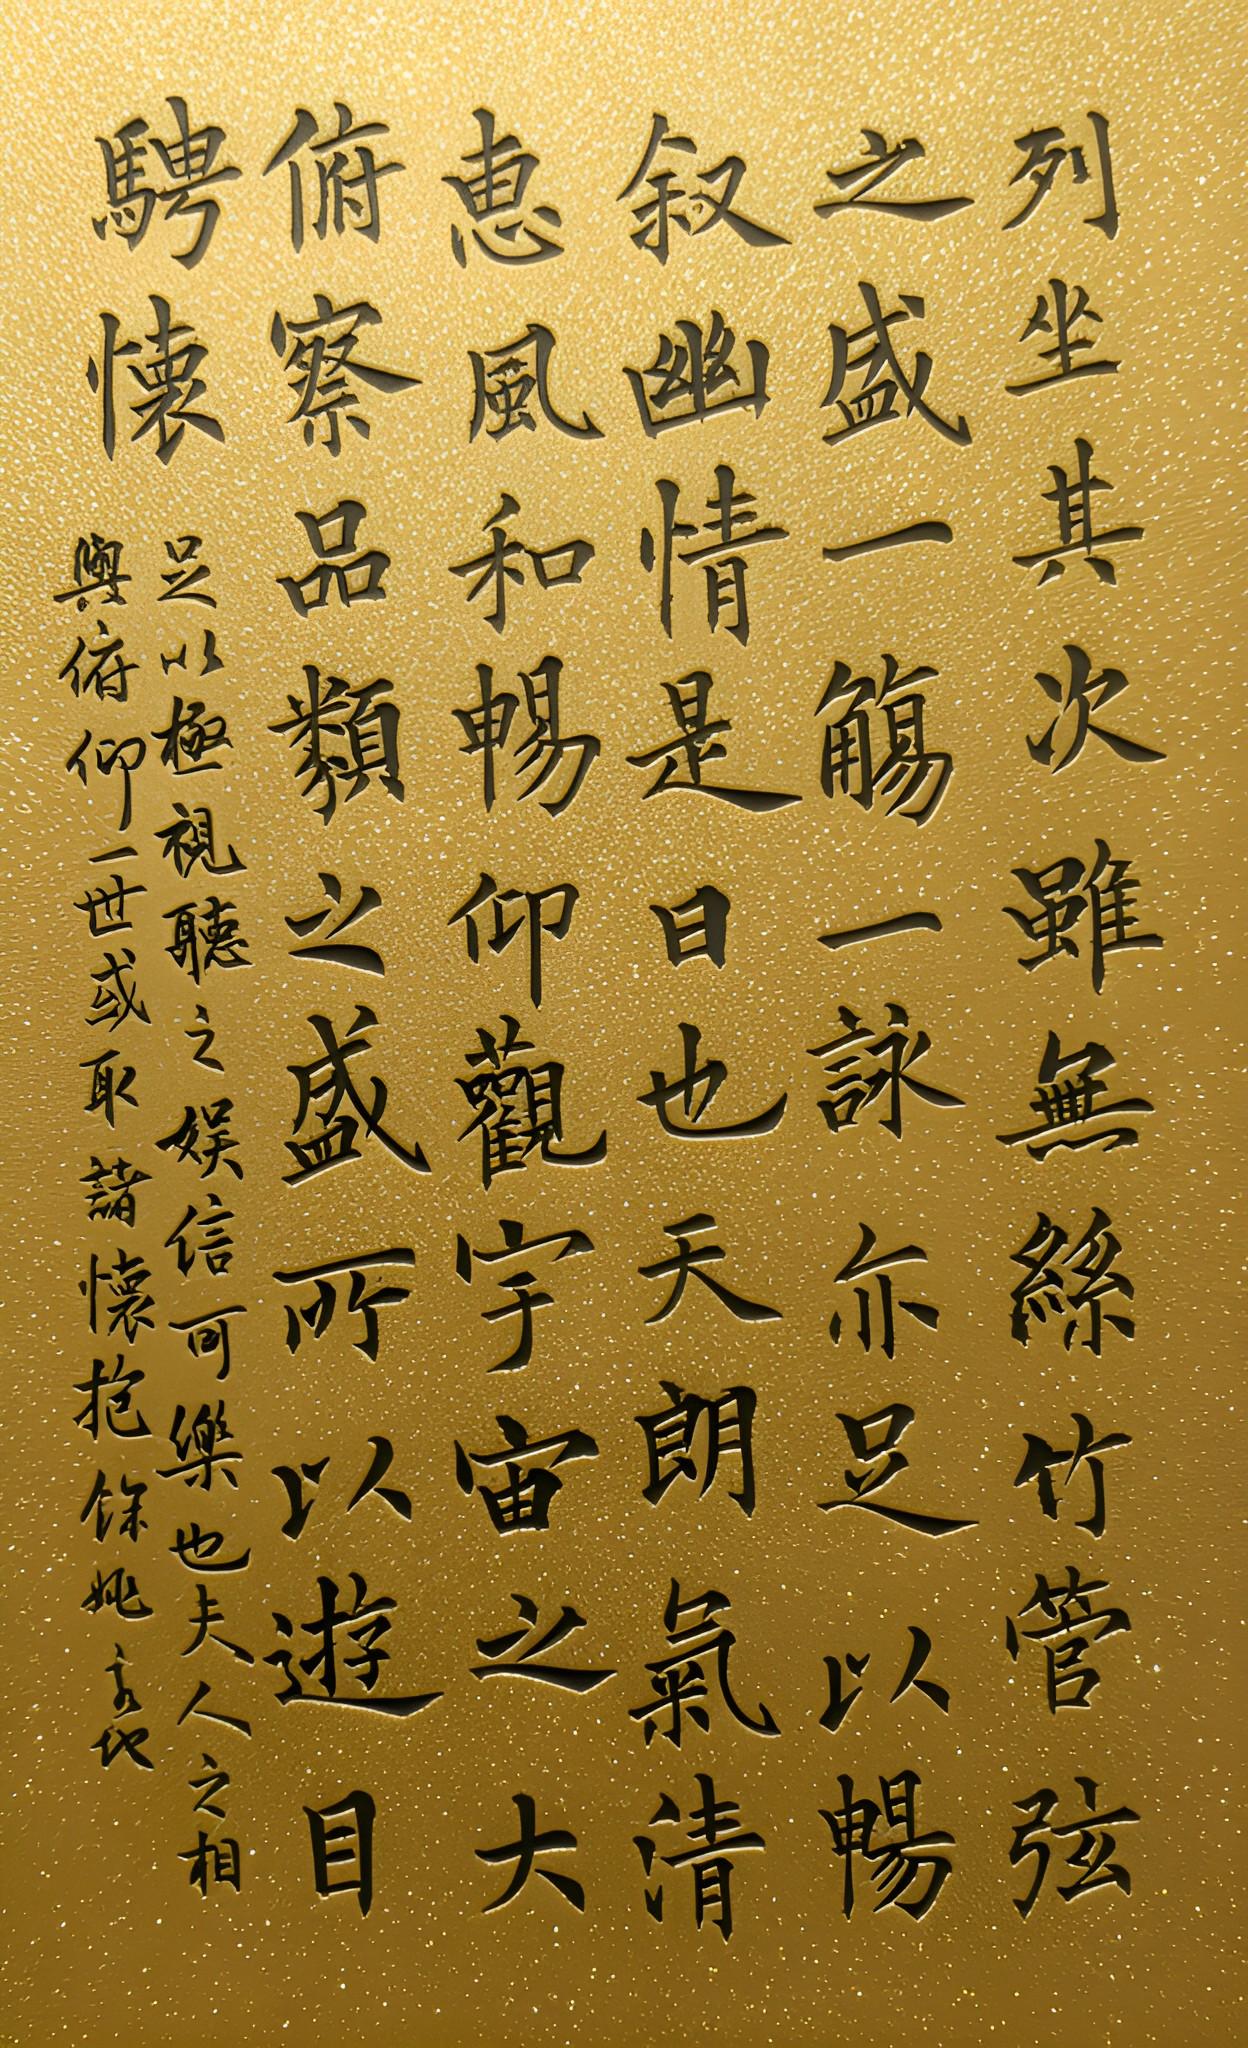 列坐其次雖無絲竹管弦
之盛一觴一詠亦足以暢
叙幽情是日也天朗氣清
惠風和暢仰觀宇宙之大
俯察品類之盛所以遊目
騁懷
足以極視聽之娛信可樂也夫人之相
與俯仰一世或取諸懷抱餘姚